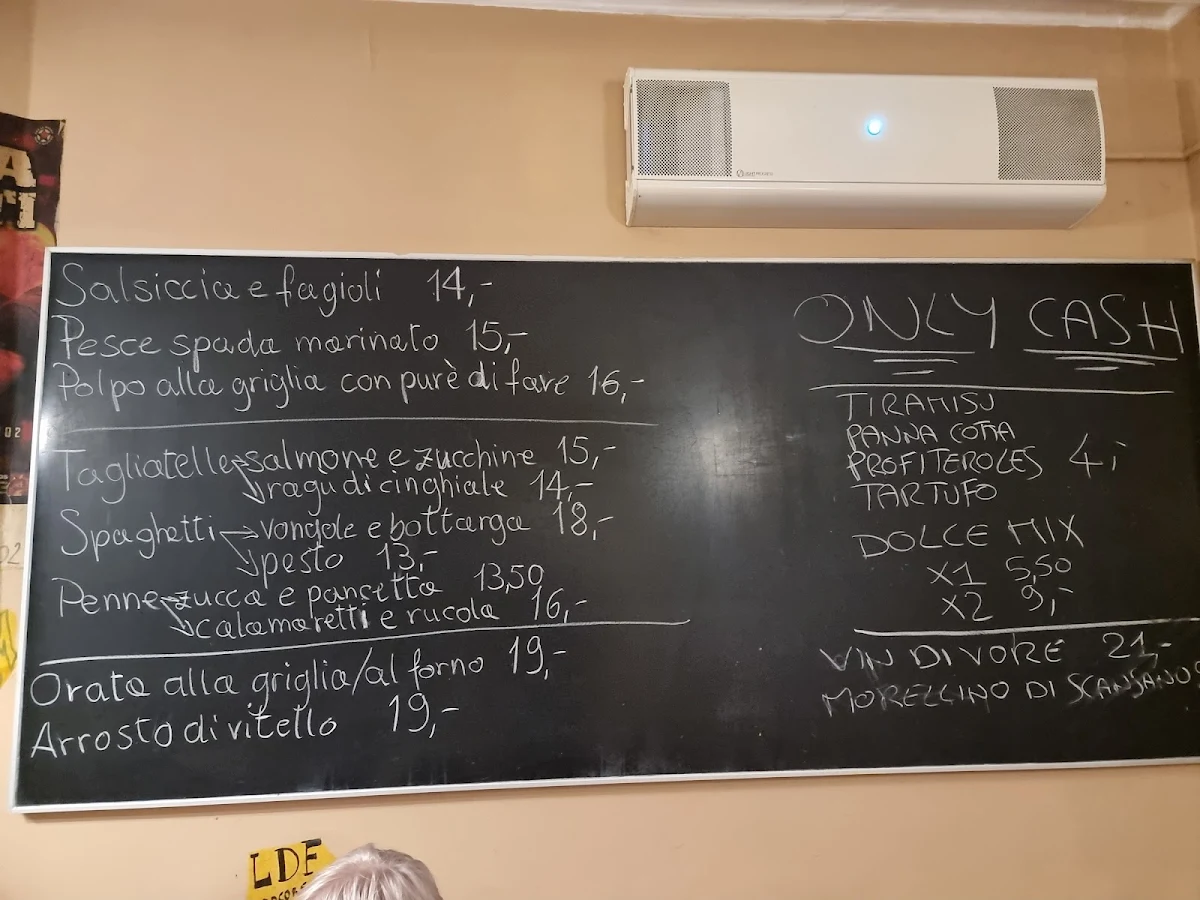 Salsiccia e fagioli 14,-
Pesce spada marinato 15,-
Polpo alla griglia con purè di fave 16,-
Tagliatelle→salmone e zucchine 15,-
↘ragu di cinghiale 14,-
Spaghetti→vongole e bottarga 18,-
↘pesto 13,-
Penne→zucca e pansetta 13,50
↘calamaretti e rucola 16,-
Orata alla griglia/al forno 19,-
Arrosto di vitello 19,-
ONLY CASH
TIRAMISU
PANNA COTTA
PROFITEROLES 4,-
TARTUFO
DOLCE MIX
X1 5,50
X2 9,-
VIN DI VORE 21,-
MORELLINO DI SCANSANO
LDF